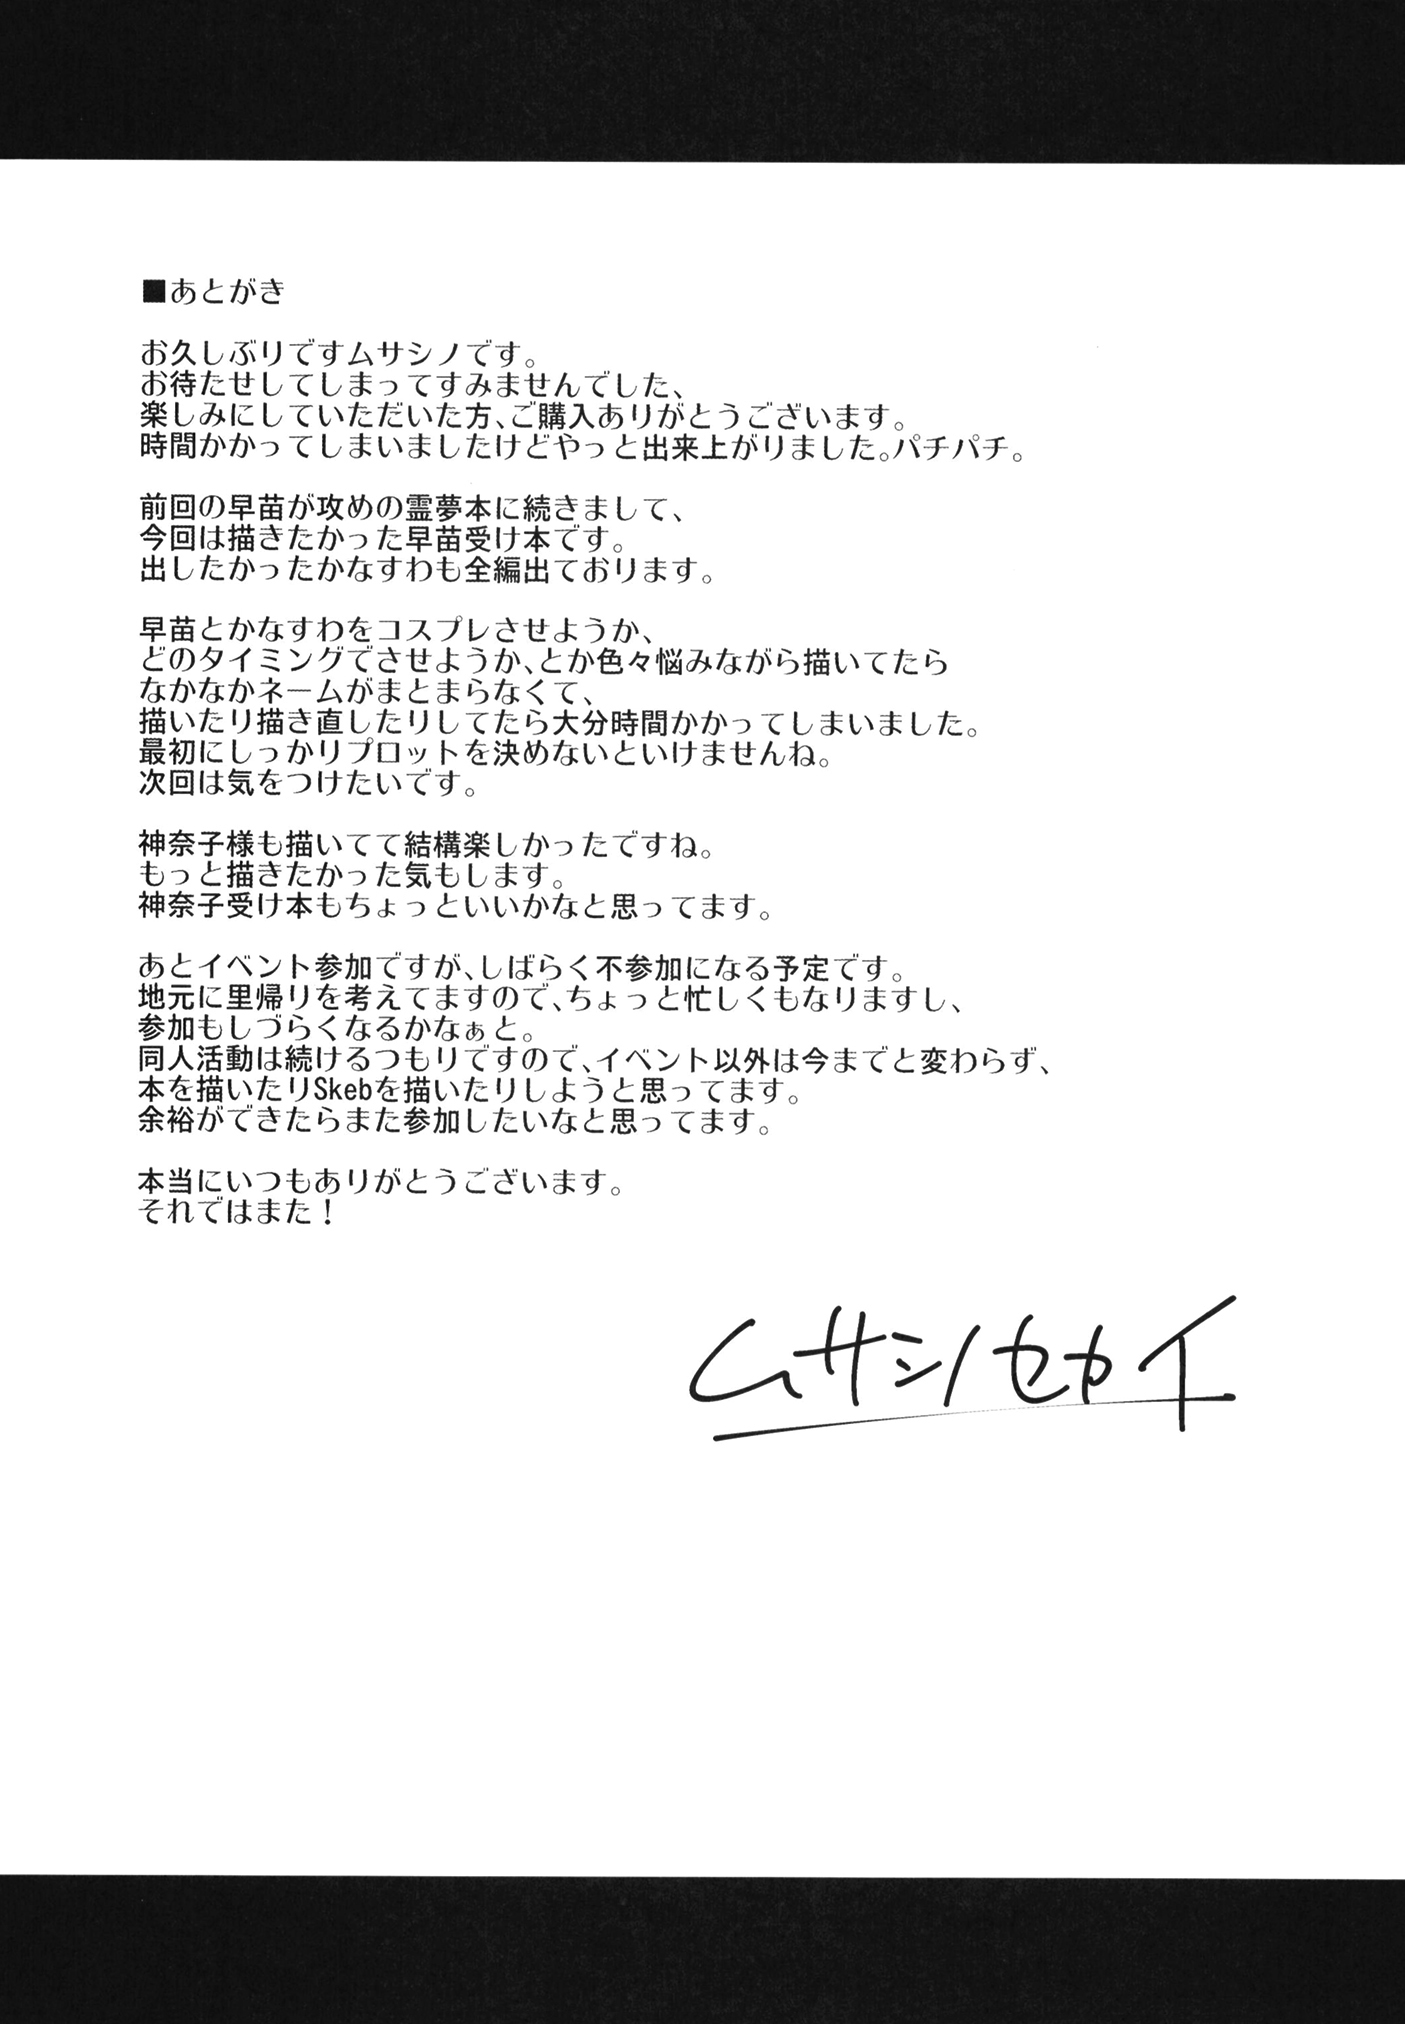 ■あとがき
お久しぶりですムサシノです。
お待たせしてしまってすみませんでした、
楽しみにしていただいた方、ご購入ありがとうございます。
時間かかってしまいましたけどやっと出来上がりました。パチパチ。
前回の早苗が攻めの霊夢本に続きまして、
今回は描きたかった早苗受け本です。
出したかったかなすわも全編出ております。
早苗とかなすわをコスプレさせようか、
どのタイミングでさせようか、とか色々悩みながら描いてたら
なかなかネームがまとまらなくて、
描いたり描き直したりしてたら大分時間かかってしまいました。
最初にしっかりプロットを決めないといけませんね。
次回は気をつけたいです。
神奈子様も描いてて結構楽しかったですね。
もっと描きたかった気もします。
神奈子受け本もちょっといいかなと思ってます。
あとイベント参加ですが、しばらく不参加になる予定です。
地元に里帰りを考えてますので、ちょっと忙しくもなりますし、
参加もしづらくなるかなぁと。
同人活動は続けるつもりですので、イベント以外は今までと変わらず、
本を描いたりSkebを描いたりしようと思ってます。
余裕ができたらまた参加したいなと思ってます。
本当にいつもありがとうございます。
それではまた！
ムサシノセカイ